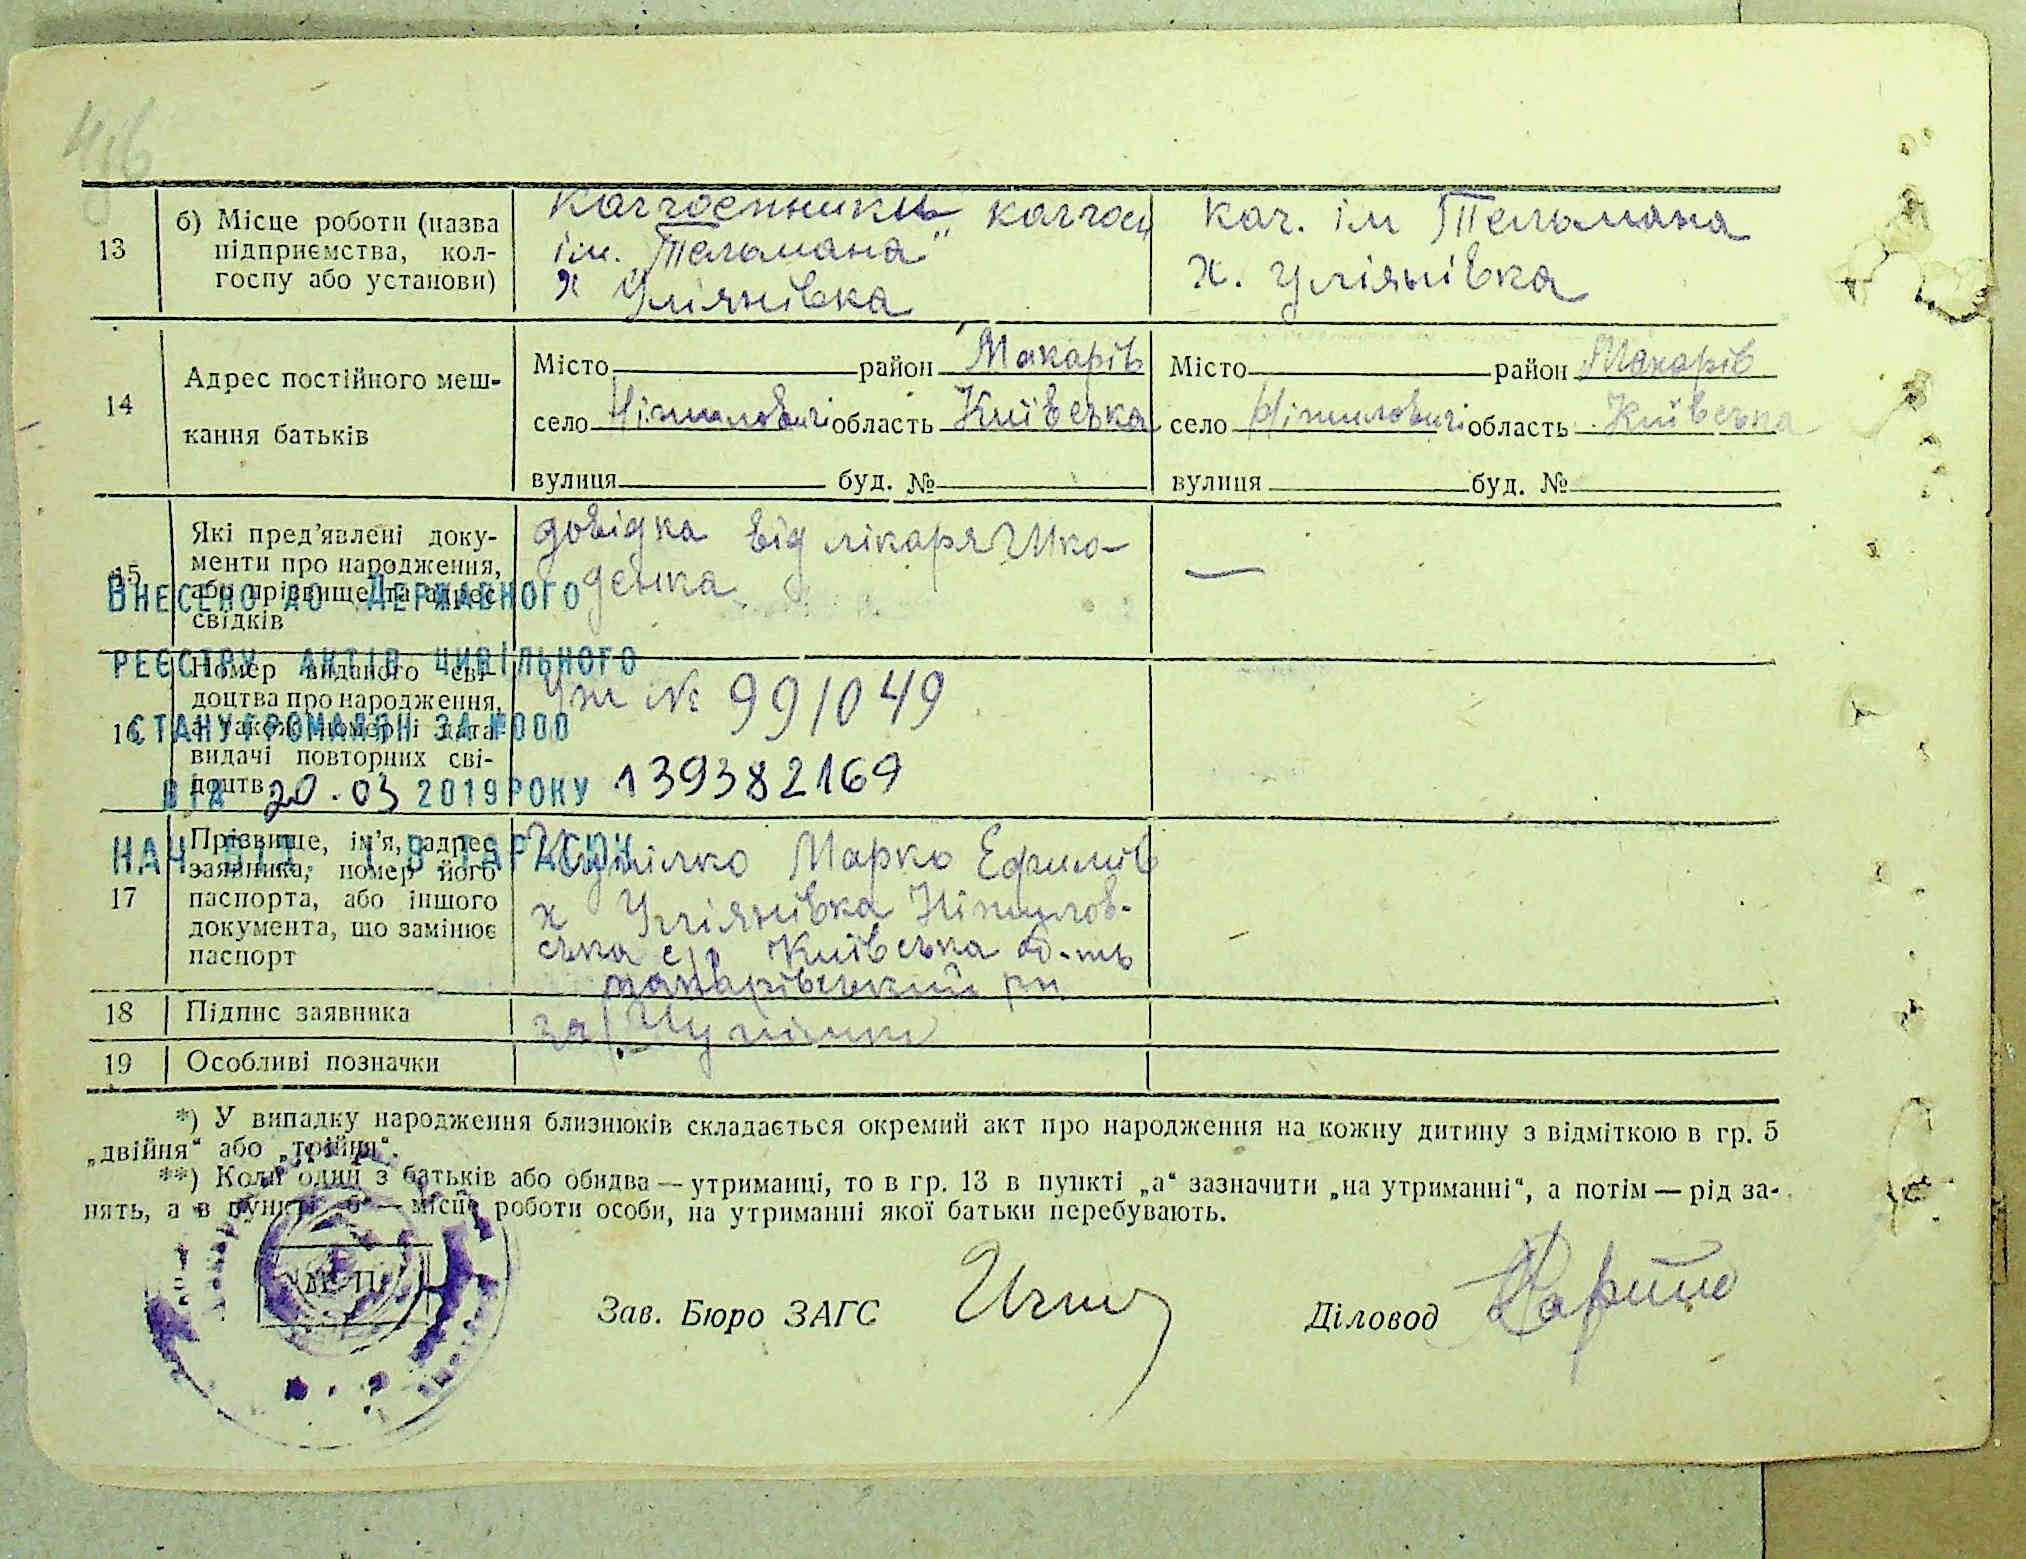 13
б) Місце роботи (назва
підприємства, кол-
госпу або установи)
колгоспники колгосп
ім. Тельмана"
х Уліянівка
кол. ім Тельмана
х. Уліянівка
14
Адрес постійного меш-
кання батьків
Місто район Макарів
село Ніжиловичі область Київська
вулиця буд. №
Місто район Макарів
село Ніжиловичі область Київська
вулиця буд. №
15
Які пред'явлені доку-
менти про народження,
або прізвище та адрес
свідків
довідка від лікаря Шко-
денка
—
16
Номер виданого сві-
доцтва про народження,
а також номер і дата
видачі повторних сві-
доцтв
№ 991049
139382169
Внесено до Державного
реєстру актів цивільного
стану громадян за №000
від 20.03 2019 року
Нач. від. І.В. Тарасюк
17
Прізвище, ім'я, адрес
заявника, номер його
паспорта, або іншого
документа, що замінює
паспорт
Марко Ефимів
х Уліянівка Ніжилов-
ська с/р Київська об-ть
макарівський рн
18
Підпис заявника
за
19
Особливі позначки
*) У випадку народження близнюків складається окремий акт про народження на кожну дитину з відміткою в гр. 5
„двійня“ або „трійня“.
**) Коли один з батьків або обидва — утриманці, то в гр. 13 в пункті „а“ зазначити „на утриманні“, а потім — рід за-
нять, а в пункті „б“ — місце роботи особи, на утриманні якої батьки перебувають.
М. П.
Зав. Бюро ЗАГС
Діловод